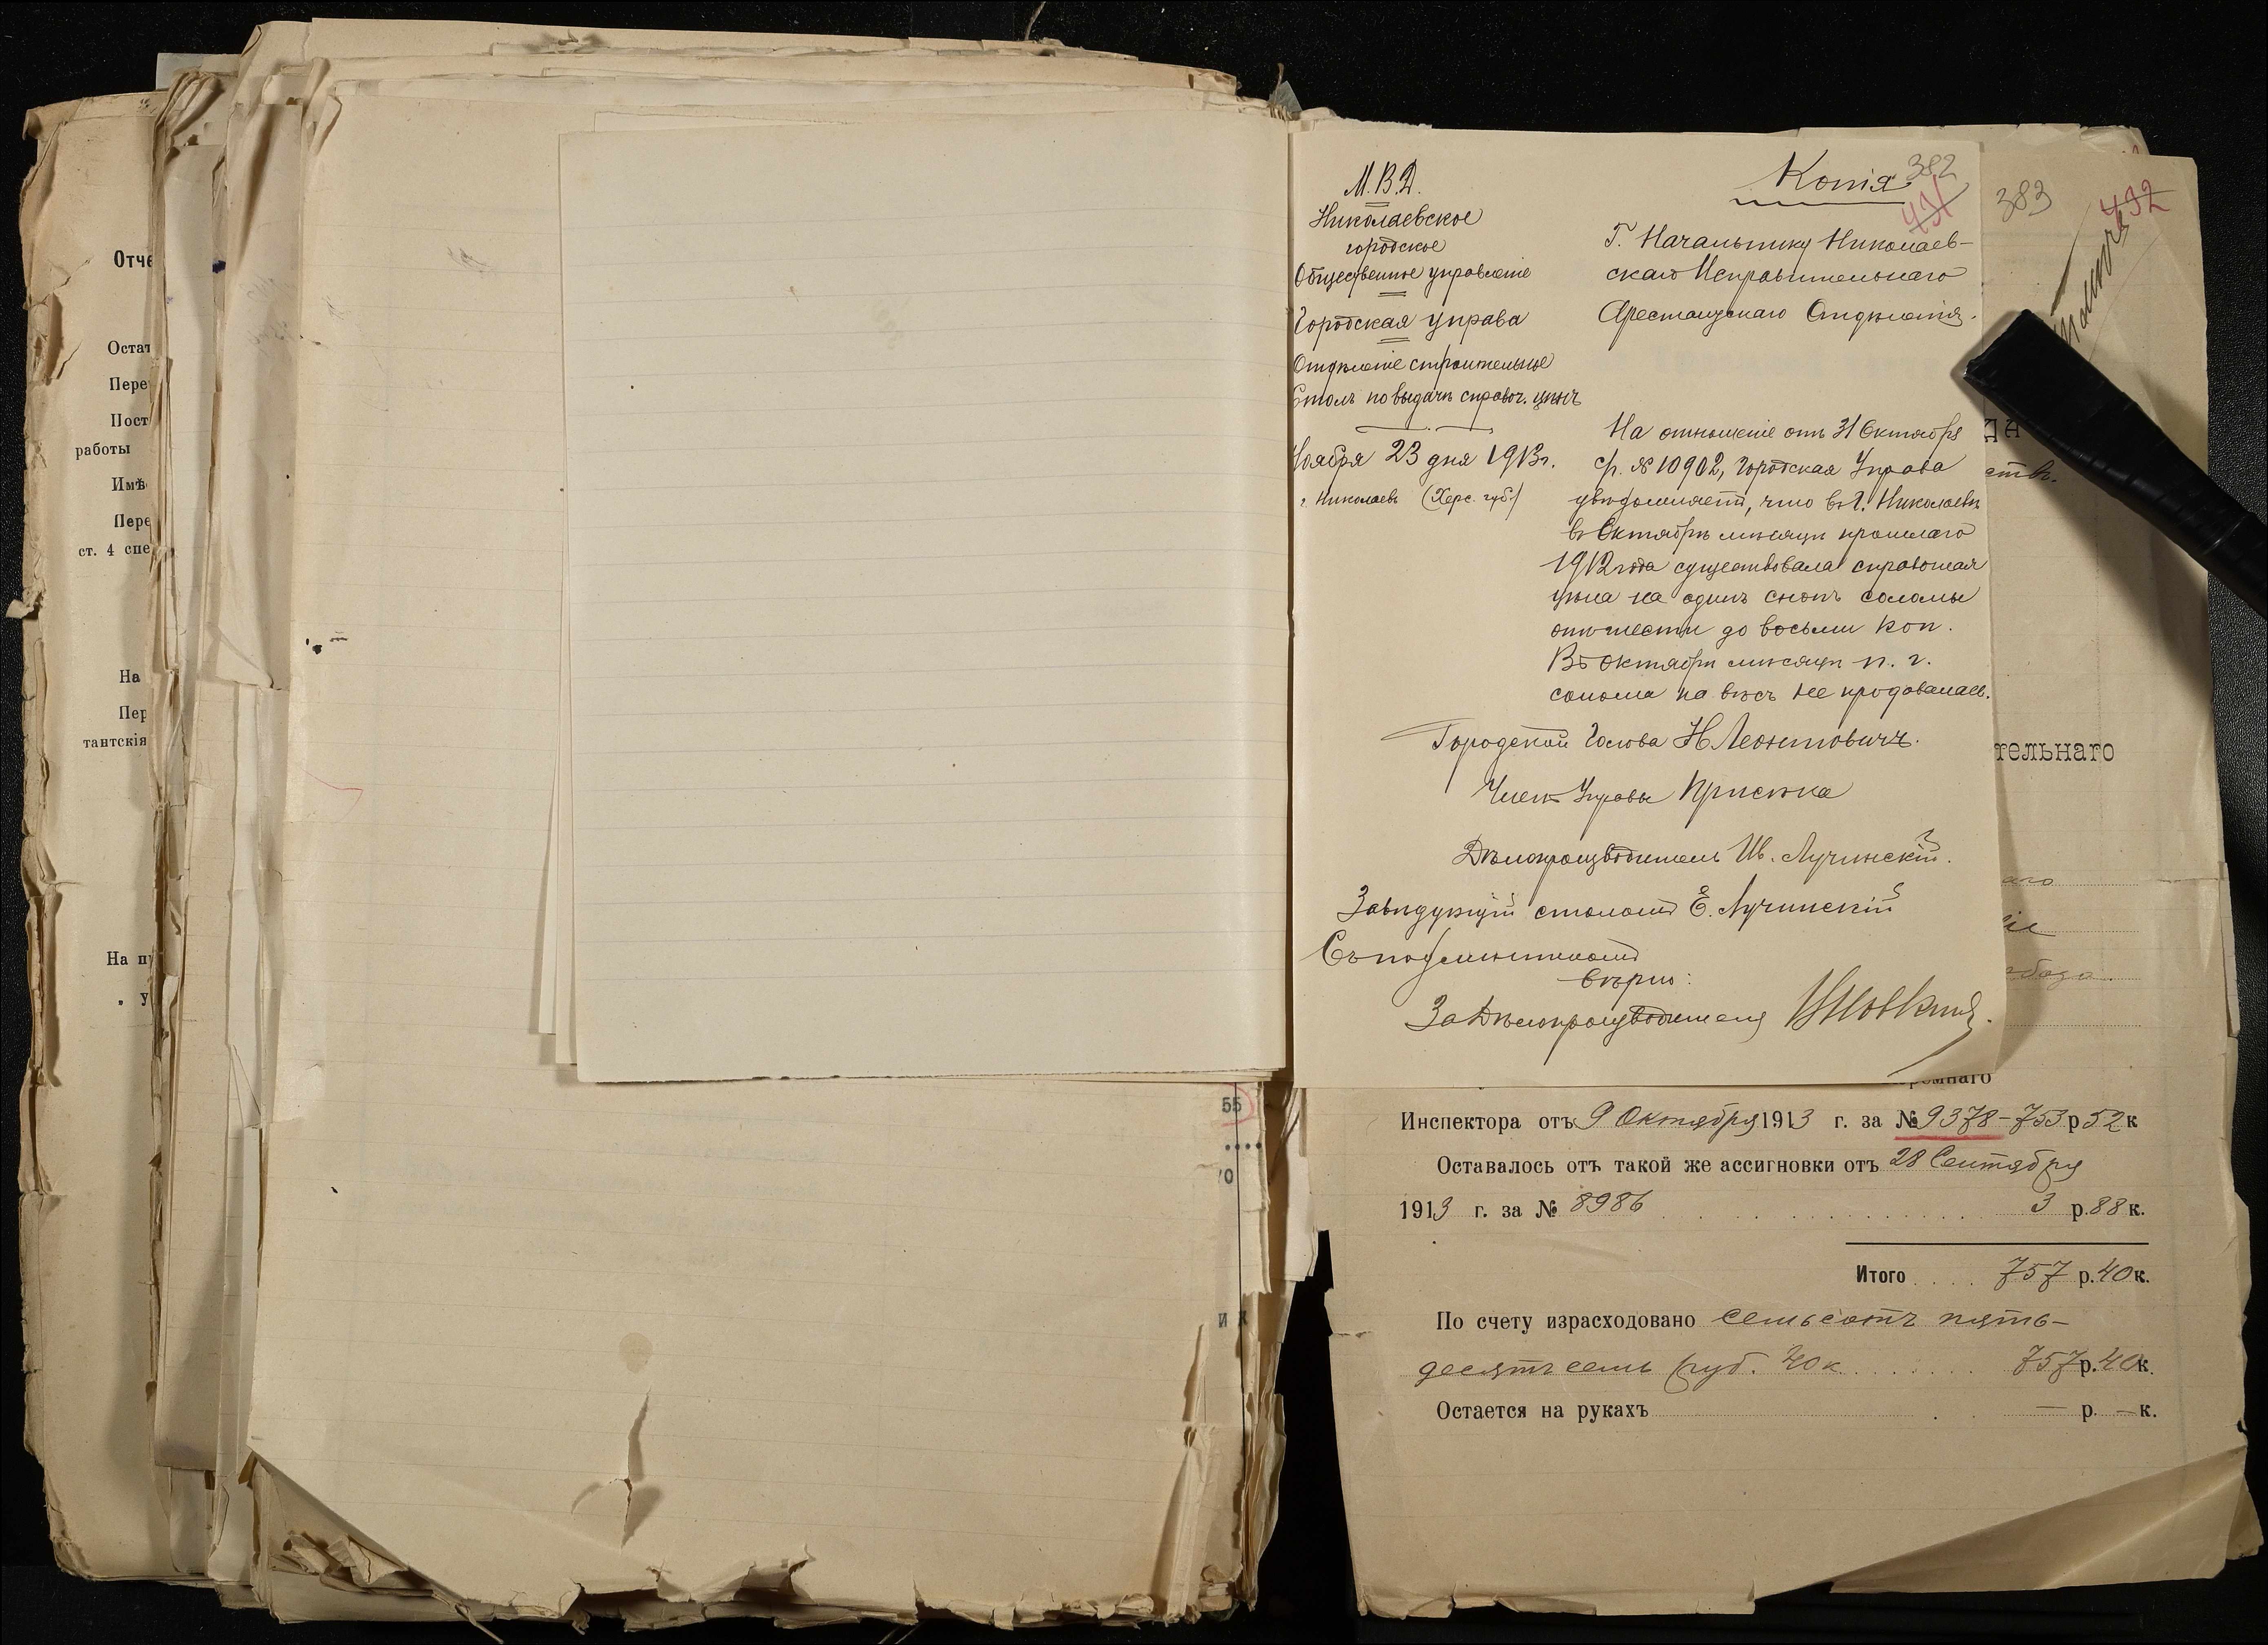 Отче
Остат
Пере
Пост
работы
Имѣ
Пере
ст. 4 спе
На
Пер
тантскія
На п
" у
55
и к
М.В.Д.
Николаевское
городское
Общественное управленіе
Городская управа
Отдѣленіе строительное
Столъ по выдачѣ справоч. цѣнъ
Ноября 23 дня 1913 г.
г. Николаевъ (Херс. губ.)
Копія
382
431
Г. Начальнику Николаев-
скаго Исправительнаго
Арестантскаго Отдѣленія.
На отношеніе отъ 31 Октября
с/г. № 10902, Городская Управа
увѣдомляетъ, что въ г. Николаевѣ
въ Октябрѣ мѣсяцѣ прошлаго
1912 года существовала справочная
цѣна на одинъ снопъ соломы
отъ шести до восьми коп.
Въ октябрѣ мѣсяцѣ п. г.
солома на вѣсъ не продавалась.
Городской Голова Н Леонтовичъ.
Членъ Управы
Дѣлопроизводитель Ив. Лучинскій.
Завѣдующій столомъ Е. Лучинскій
Съ подлиннымъ
вѣрно:
За Дѣлопроизводителя
383
432
ДА
ств.
тельнаго
аго
іе
ремнаго
Инспектора отъ 9 Октября 1913 г. за № 9378 - 753 р 52 к
Оставалось отъ такой же ассигновки отъ 28 Сентября
1913 г. за № 8986 . . . 3 р. 88 к.
Итого . . . . 757 р. 40 к.
По счету израсходовано семьсотъ пять-
десятъ семь руб. 40 к. . . . 757 р. 40 к.
Остается на рукахъ . . — р. — к.